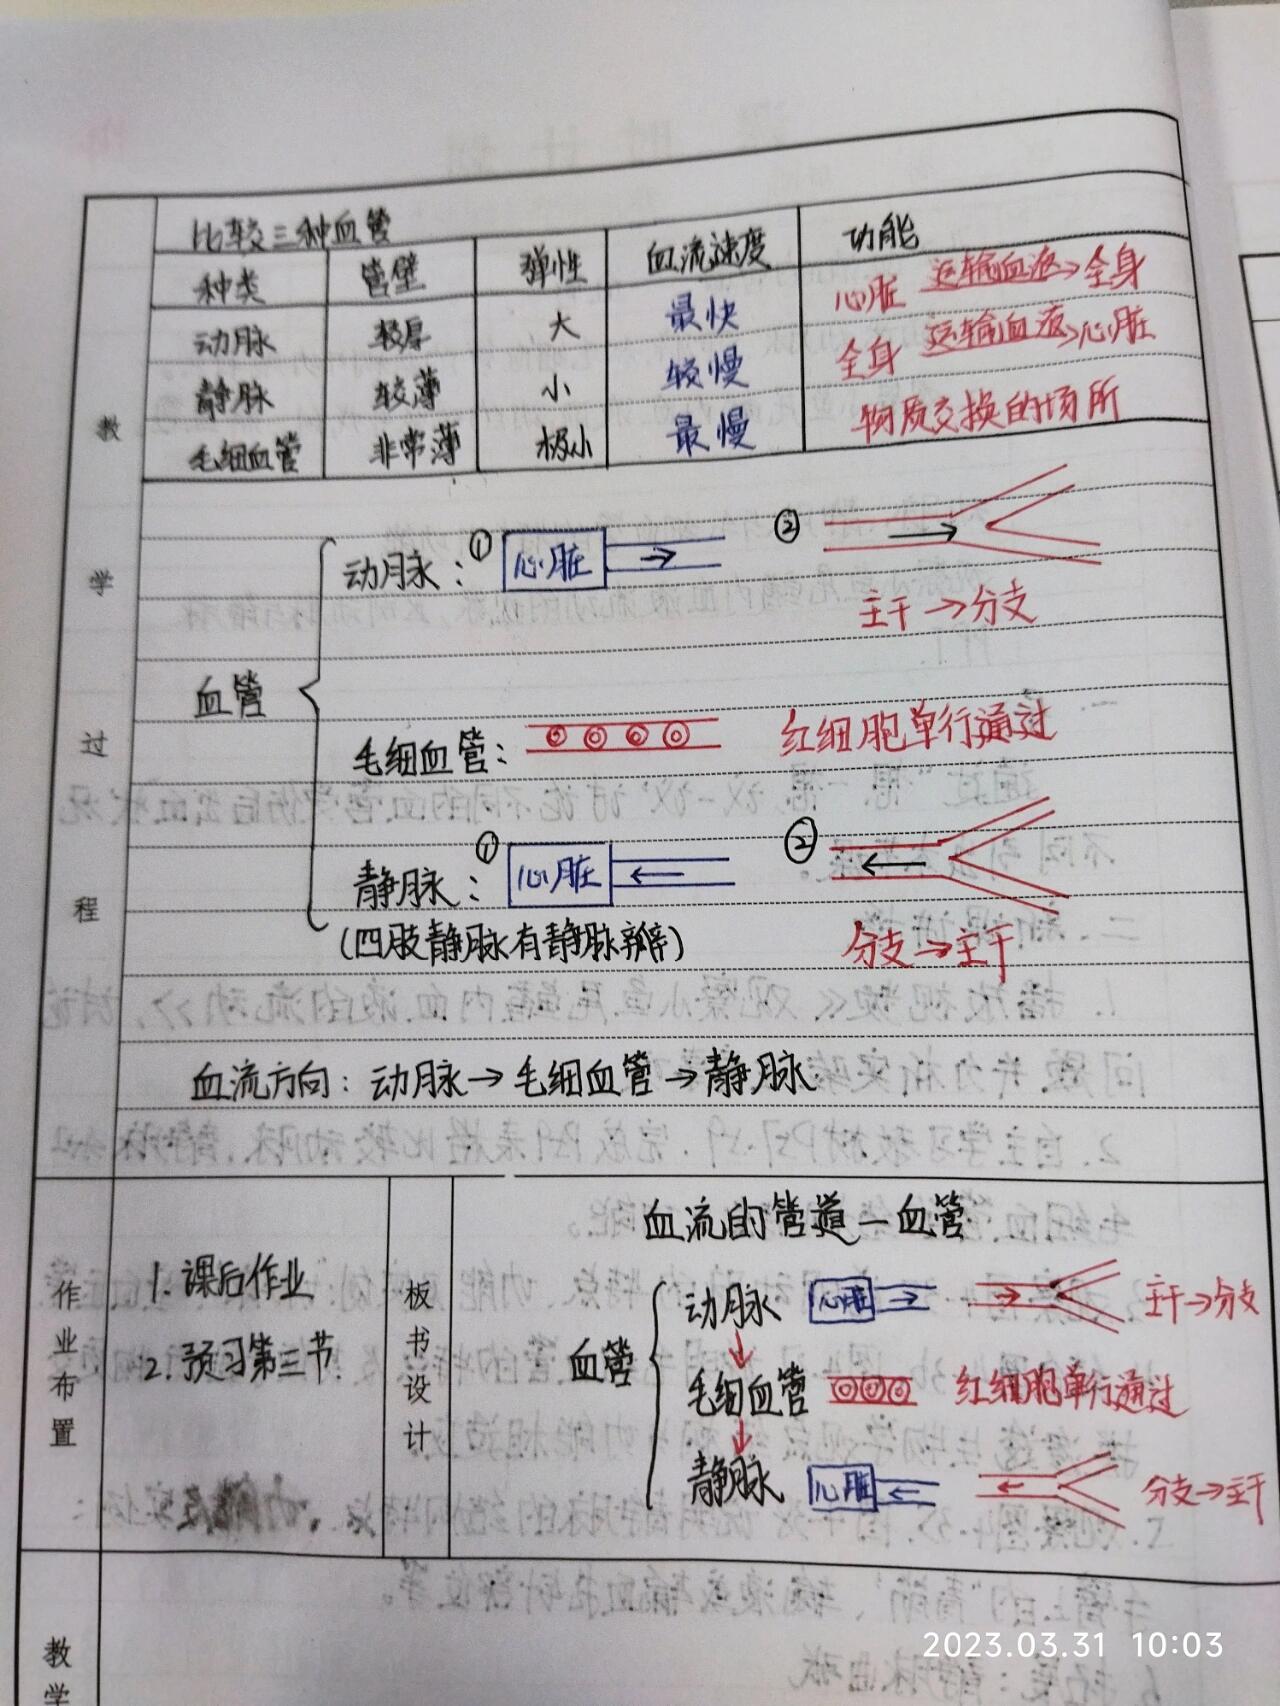 比较三种血管
种类 管壁 弹性 血流速度 功能
动脉 较厚 大 最快 心脏 运输血液→ 全身
静脉 较薄 小 较慢 全身 运输血液→ 心脏
毛细血管 非常薄 极小 最慢 物质交换的场所
教学过程
动脉：① 心脏 → ② →
主干→分支
血管
毛细血管： 红细胞单行通过
静脉：① 心脏 ← ② ←
(四肢静脉有静脉瓣) 分支→主干
血流方向：动脉→毛细血管→静脉
作业布置
1. 课后作业
2. 预习第三节.
板书设计
血流的管道—血管
血管
动脉 心脏 → → 主干→分支
↓
毛细血管 红细胞单行通过
↓
静脉 心脏 ← ← 分支→主干
教学
2023.03.31 10:03